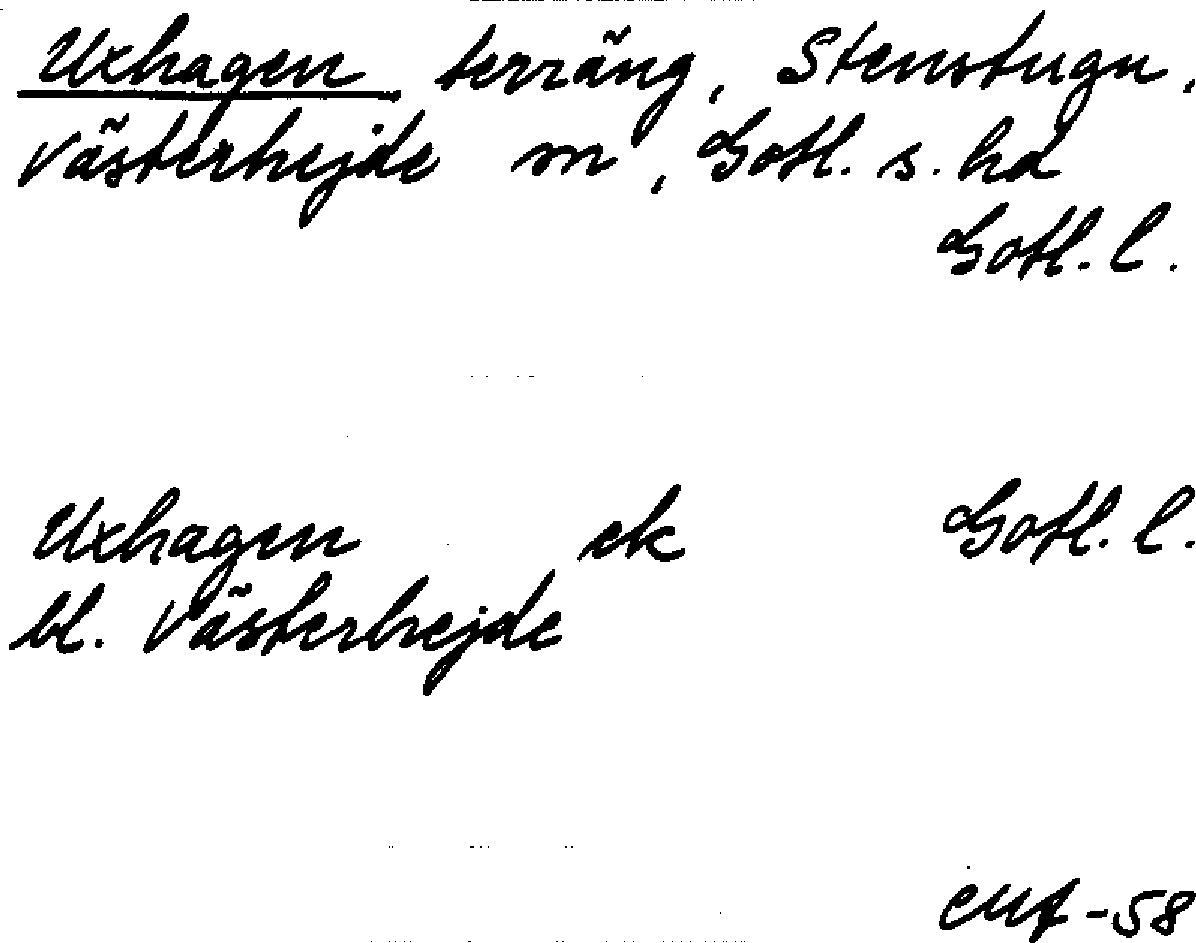 Uxhagen terräng, Stenstugu,
Västerhejde sn, Gotl. s. hd
Gotl. l.
Uxhagen ek Gotl. l.
bl. Västerhejde
-58